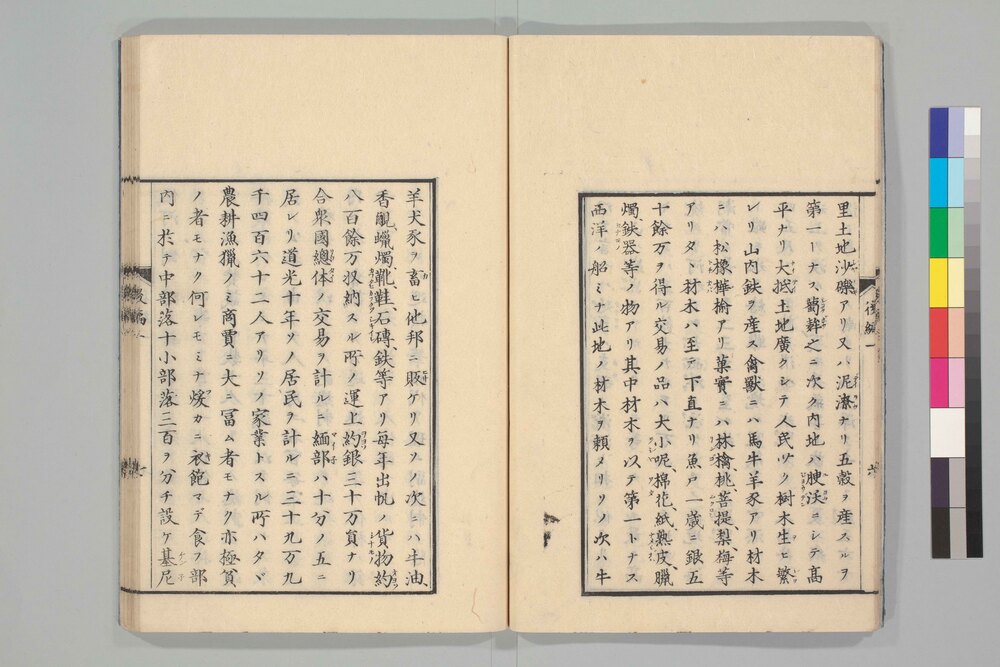 里土地沙礫アリ又ハ泥潦ナリ五穀ヲ産スルヲ
第一トナス蕎麰之ニ次ク内地ハ腴沃ニシテ高
平ナリ大抵土地廣クシテ人民少ク樹木生ヒ繁
レリ山内鉄ヲ産ス禽獸ニハ馬牛羊豕アリ材木
ニハ松橡樺榆アリ菓實ニハ林檎、桃、菩提梨、梅等
アリタヾ材木ハ至テ下直ナリ魚戸一歳ニ銀五
十餘万ヲ得ル交易ノ品ハ大小呢、棉花、紙、熟皮、臘
燭、鉄器等ノ物アリ其中材木ヲ以テ第一トナス
西洋ノ船ミナ此地ノ材木ヲ頼メリソノ次ハ牛
後編一
六
羊犬豕ヲ畜ヒ他邦ニ販ケリ又ソノ次ニハ牛油、
香鹸、蠟燭、靴鞋、石磚、鉄等アリ毎年出帆ノ貨物約
八百餘万収納スル所ノ運上約銀三十万員ナリ
合衆國總体ノ交易ヲ計ルニ緬部ハ十分ノ五ニ
居レリ道光十年ソノ居民ヲ計ルニ三十九万九
千四百六十二人アリソノ家業トスル所ハタヾ
農耕漁獵ノミ商賈ニ大ニ冨ム者モナク亦極貧
ノ者モナク何レモミナ煖カニ衣飽マデ食フ部
内ニ於テ中部落十小部落三百ヲ分チ設ケ基尼